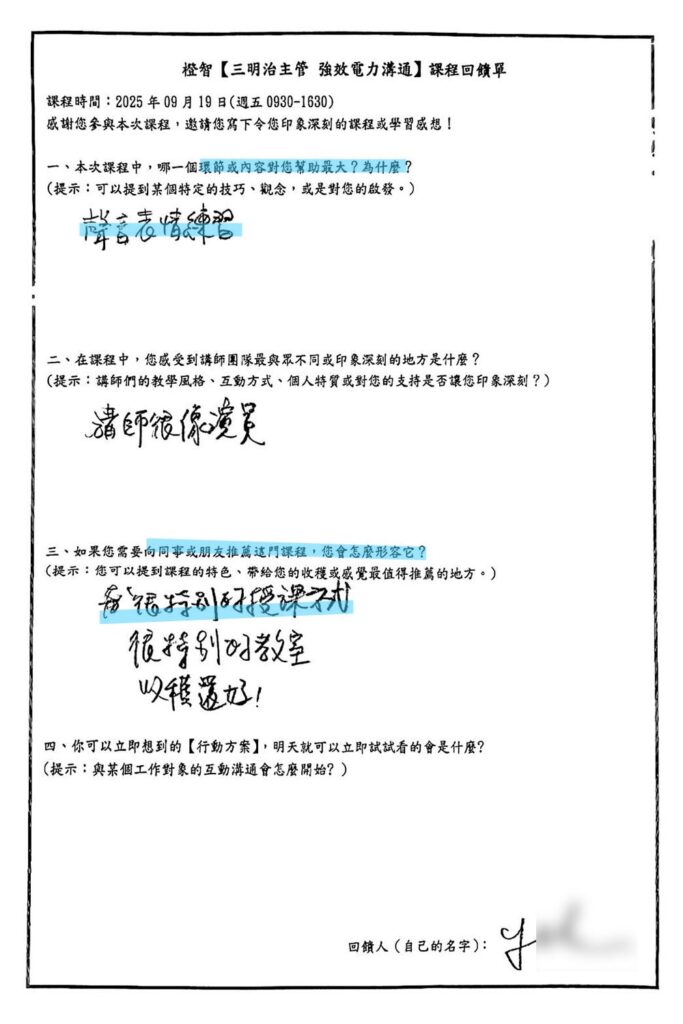 橙智【三明治主管 強效電力溝通】課程回饋單
課程時間：2025 年 09 月 19 日(週五 0930-1630)
感謝您參與本次課程，邀請您寫下令您印象深刻的課程或學習感想！
一、本次課程中，哪一個環節或內容對您幫助最大？為什麼？
(提示：可以提到某個特定的技巧、觀念，或是對您的啟發。)
聲音表情練習
二、在課程中，您感受到講師團隊最與眾不同或印象深刻的地方是什麼？
(提示：講師們的教學風格、互動方式、個人特質或對您的支持是否讓您印象深刻？)
講師很像演員
三、如果您需要向同事或朋友推薦這門課程，您會怎麼形容它？
(提示：您可以提到課程的特色、帶給您的收穫或感覺最值得推薦的地方。)
很特別的授課方式
很特別的教室
收穫還好！
四、你可以立即想到的【行動方案】，明天就可以立即試試看的會是什麼?
(提示：與某個工作對象的互動溝通會怎麼開始？)
回饋人（自己的名字）：